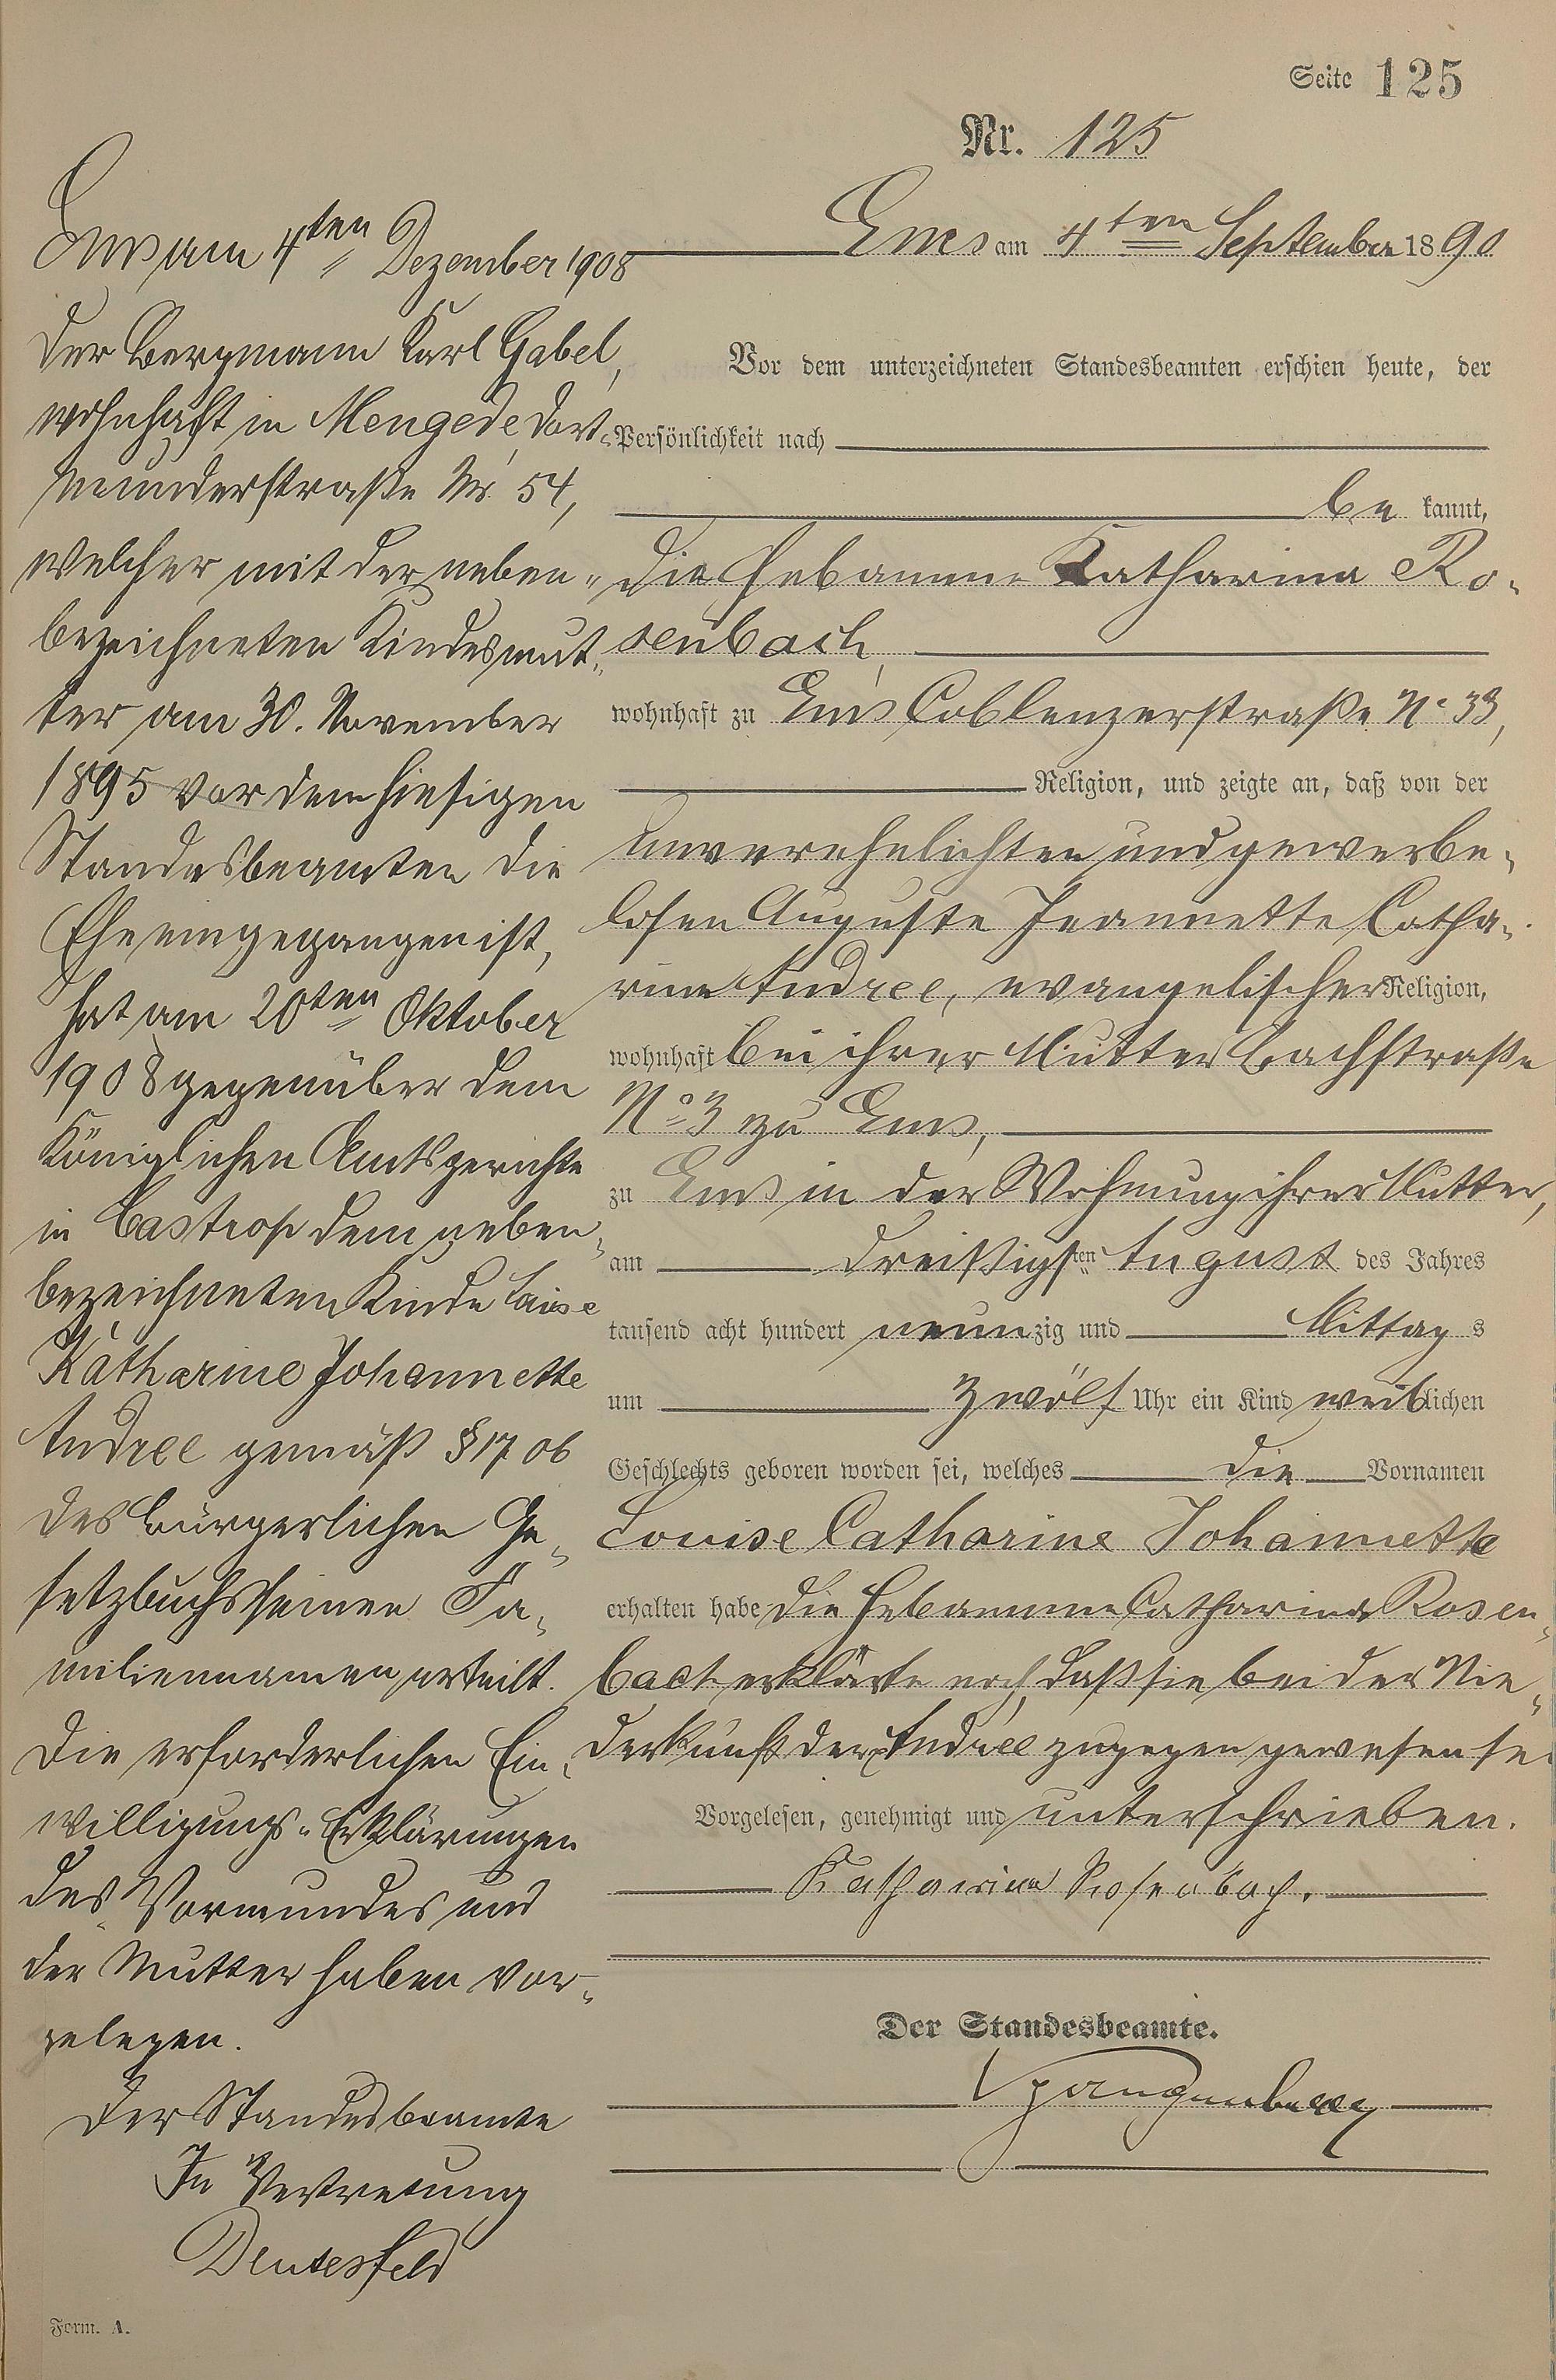 Seite 125
Nr. 125
Ems am 4ten September 1890
Vor dem unterzeichneten Standesbeamten erschien heute, der
Persönlichkeit nach
be kannt,
die Hebamme Katharina Ro-
senbach,
wohnhaft zu Ems Coblenzerstraße No 33,
Religion, und zeigte an, daß von der
unverehelichten und gewerbe-
losen Auguste Jeannette Catha-
rine Andree, evangelischer Religion,
wohnhaft bei ihrer Mutter Bachstraße
No 3 zu Ems,
zu Ems in der Wohnung ihrer Mutter,
am dreißigsten August des Jahres
tausend acht hundert neunzig und Mittag s
um zwölf Uhr ein Kind weiblichen
Geschlechts geboren worden sei, welches die Vornamen
Louise Catharine Johannette
erhalten habe die Hebamme Catharina Rosen-
bach erklärte noch, daß sie bei der Nie-
derkunft der Andree zugegen gewesen sei
Vorgelesen, genehmigt und unterschrieben.
Katharina Rosenbach.
Der Standesbeamte.
Ems am 4ten Dezember 1908
Der Bergmann Karl Gabel,
wohnhaft in Mengede, Dort-
munderstraße Nr. 54,
welcher mit der neben-
bezeichneten Kindesmut-
ter am 30. November
1895 vor dem hiesigen
Standesbeamten die
Ehe eingegangen ist,
hat am 20ten Oktober
1908 gegenüber dem
Königlichen Amtsgerichte
in Castrop dem neben-
bezeichneten Kinde Luise
Katharine Johannette
Andree gemäß § 1706
des Bürgerlichen Ge-
setzbuchs seinen Fa-
miliennamen erteilt.
Die erforderlichen Ein-
willigungs-Erklärungen
des Vormundes und
der Mutter haben vor-
gelegen.
Der Standesbeamte
In Vertretung
Deutesfeld
Form. A.